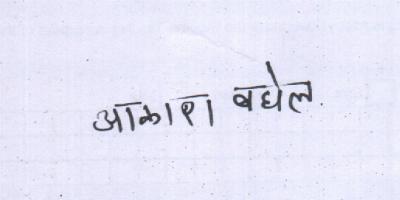 आकाश बघेल